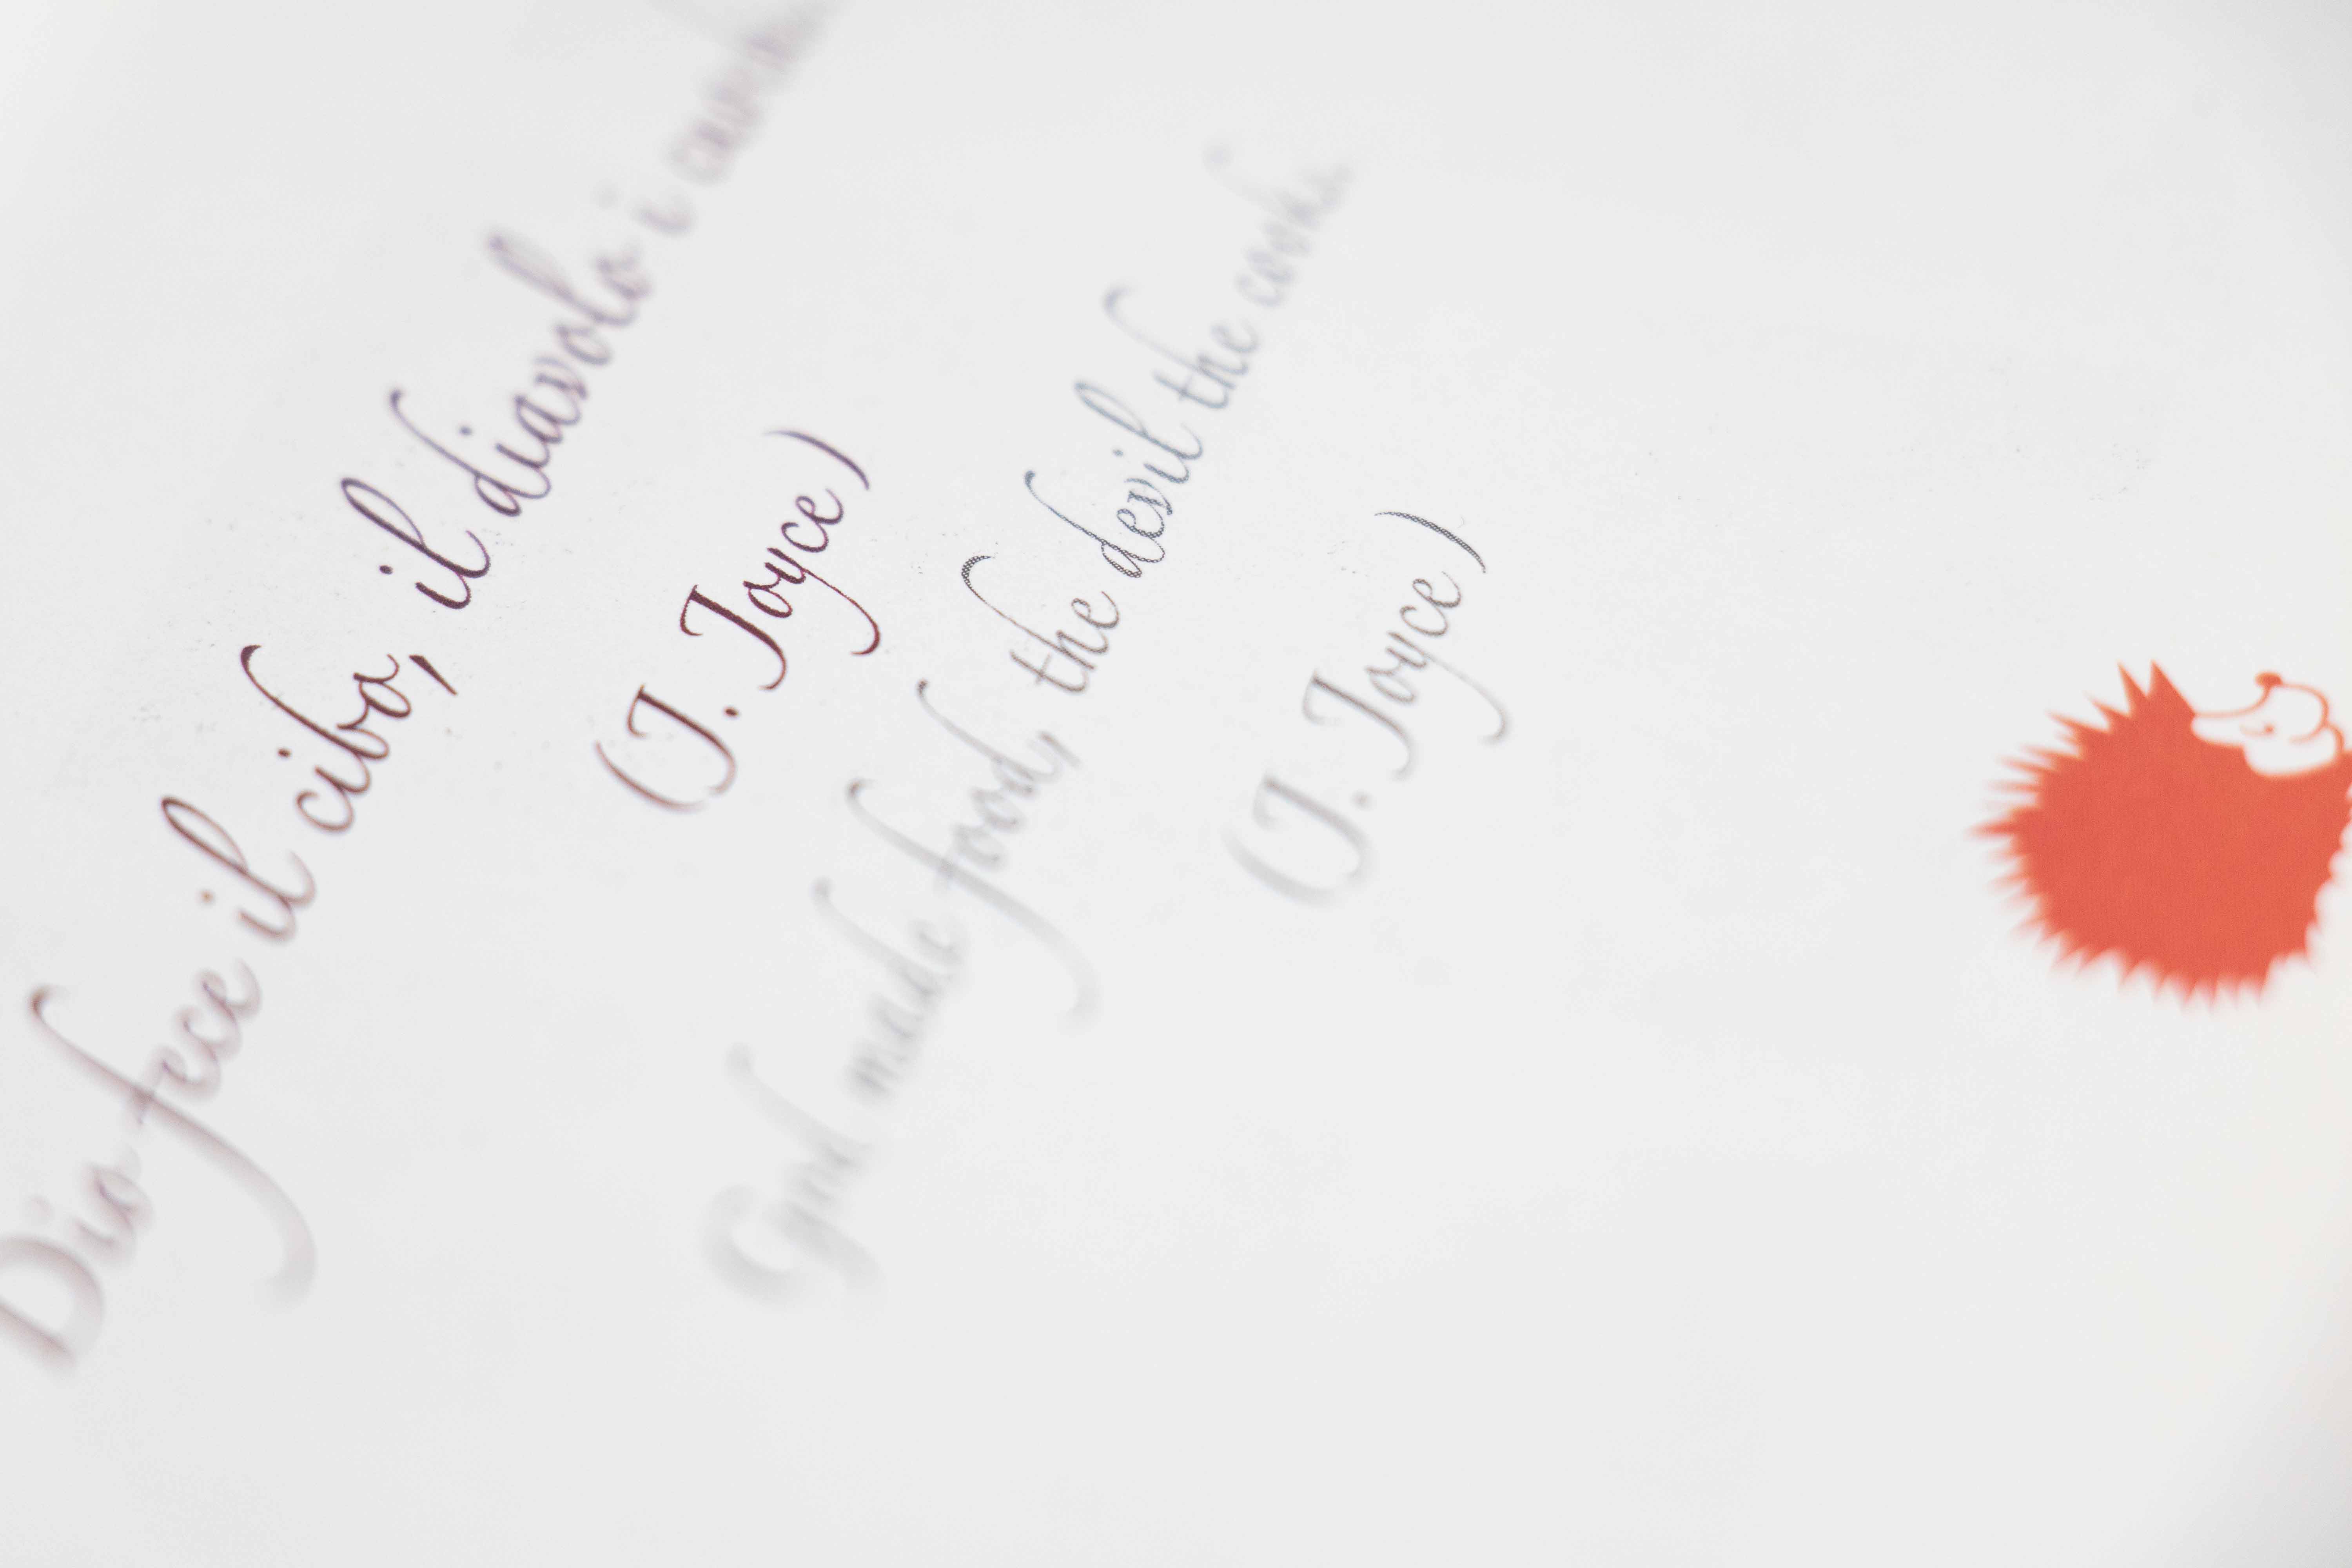 Dio fece il cibo, il diavolo i
(J. Joyce)
God made food, the devil the cooks.
(J. Joyce)